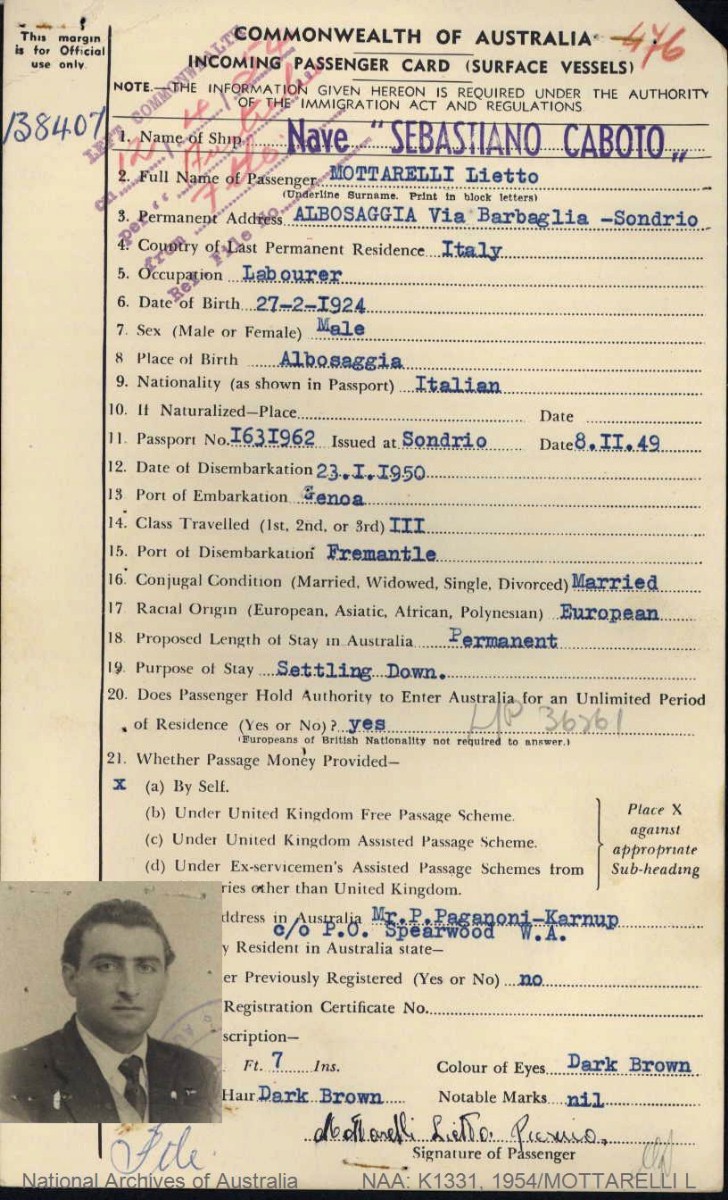 This margin
is for Official
use only.
COMMONWEALTH OF AUSTRALIA
476
INCOMING PASSENGER CARD (SURFACE VESSELS)
NOTE.—THE INFORMATION GIVEN HEREON IS REQUIRED UNDER THE AUTHORITY
OF THE IMMIGRATION ACT AND REGULATIONS
B8407
LEFT COMMONWEALTH
on
per "
from
Ref. File No.
1. Name of Ship Nave "SEBASTIANO CABOTO„
2. Full Name of Passenger MOTTARELLI Lietto
(Underline Surname. Print in block letters)
3. Permanent Address ALBOSAGGIA Via Barbaglia -Sondrio
4. Country of Last Permanent Residence Italy
5. Occupation Labourer
6. Date of Birth 27-2-I924
7. Sex (Male or Female) Male
8 Place of Birth Albosaggia
9. Nationality (as shown in Passport) Italian
10. If Naturalized—Place Date
11. Passport No. I63I962 Issued at Sondrio Date 8.II.49
12. Date of Disembarkation 23.I.I950
13 Port of Embarkation Genoa
14. Class Travelled (1st, 2nd, or 3rd) III
15. Port of Disembarkation Fremantle
16. Conjugal Condition (Married, Widowed, Single, Divorced) Married
17 Racial Origin (European, Asiatic, African, Polynesian) European
18. Proposed Length of Stay in Australia Permanent
19. Purpose of Stay Settling Down.
20. Does Passenger Hold Authority to Enter Australia for an Unlimited Period
of Residence (Yes or No)? yes 36261
(Europeans of British Nationality not required to answer.)
21. Whether Passage Money Provided—
X (a) By Self.
(b) Under United Kingdom Free Passage Scheme.
(c) Under United Kingdom Assisted Passage Scheme.
(d) Under Ex-servicemen's Assisted Passage Schemes from
ries other than United Kingdom.
Place X
against
appropriate
Sub-heading
ddress in Australia Mr.P.Paganoni-Karnup
c/o P.O. Spearwood W.A.
y Resident in Australia state—
er Previously Registered (Yes or No) no
Registration Certificate No.
scription—
Ft. 7 Ins. Colour of Eyes Dark Brown
Hair Dark Brown Notable Marks nil
Mottarelli Lietto
Signature of Passenger
File
National Archives of Australia NAA: K1331, 1954/MOTTARELLI L